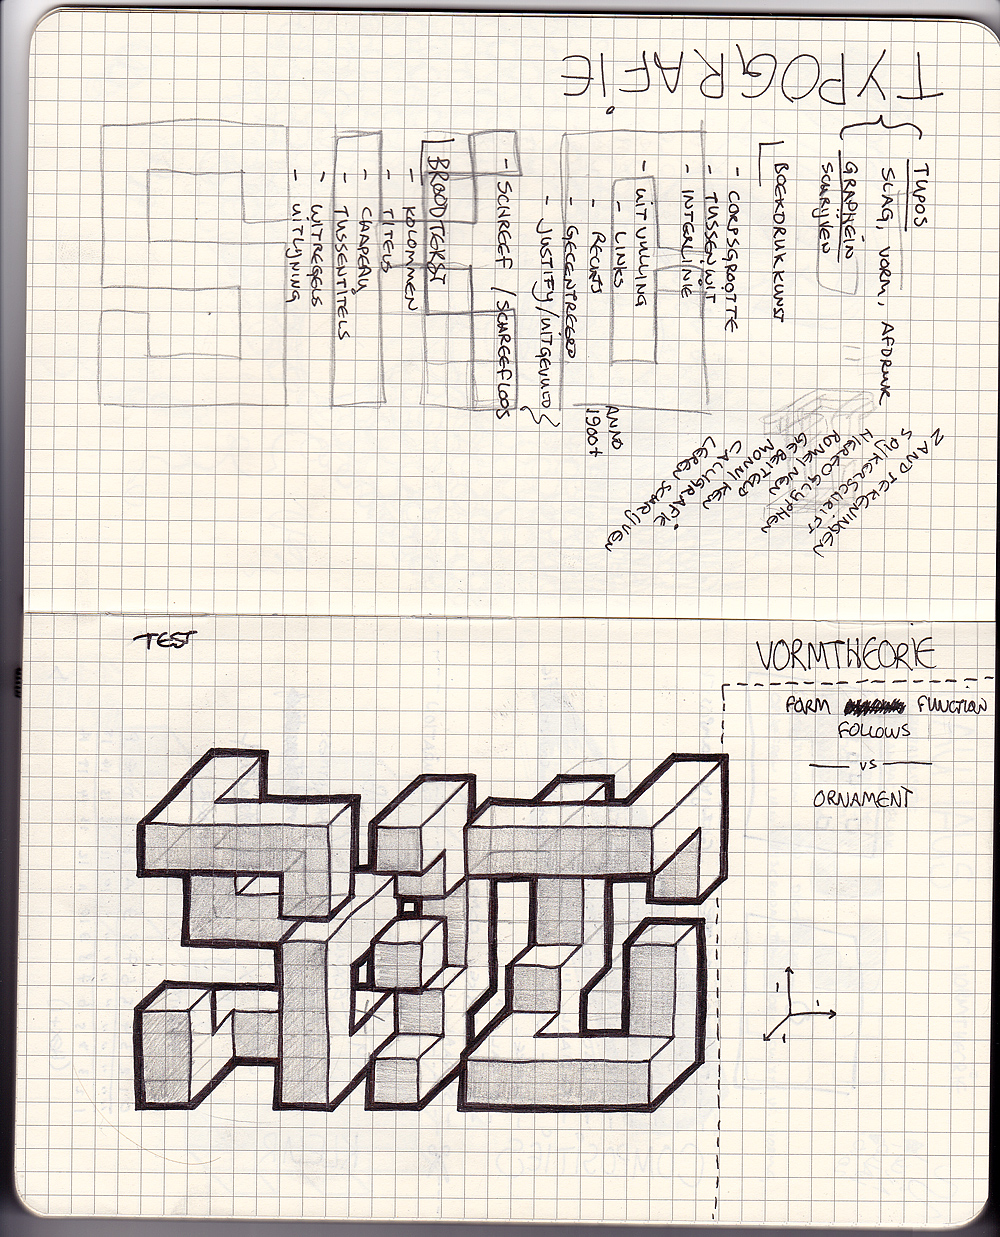 TYPOGRAFIE
TUPOS
SLAG, VORM, AFDRUK
GRAPHEIN
SCHRIJVEN
BOEKDRUKKUNST
- CORPSGROOTTE
- TUSSENWIT
- INTERLINIE
- UITVULLING
- LINKS
- RECHTS
- GECENTREERD
- JUSTIFY/UITGEVULD
- SCHREEF / SCHREEFLOOS
BROODTEKST
- KOLOMMEN
- TITELS
- CHAPEAU
- TUSSENTITELS
- WITREGELS
- UITLIJNING
ANNO
1900+
ZANDTEKENINGEN
SPIJKERSCHRIFT
HIEROGLYPHEN
ROMEINEN
GEBEITELD
MONNIKEN
CALLIGRAFIE
LEREN SCHRIJVEN
TEST
VORMTHEORIE
FORM FUNCTION
FOLLOWS
VS
ORNAMENT
1
1
1